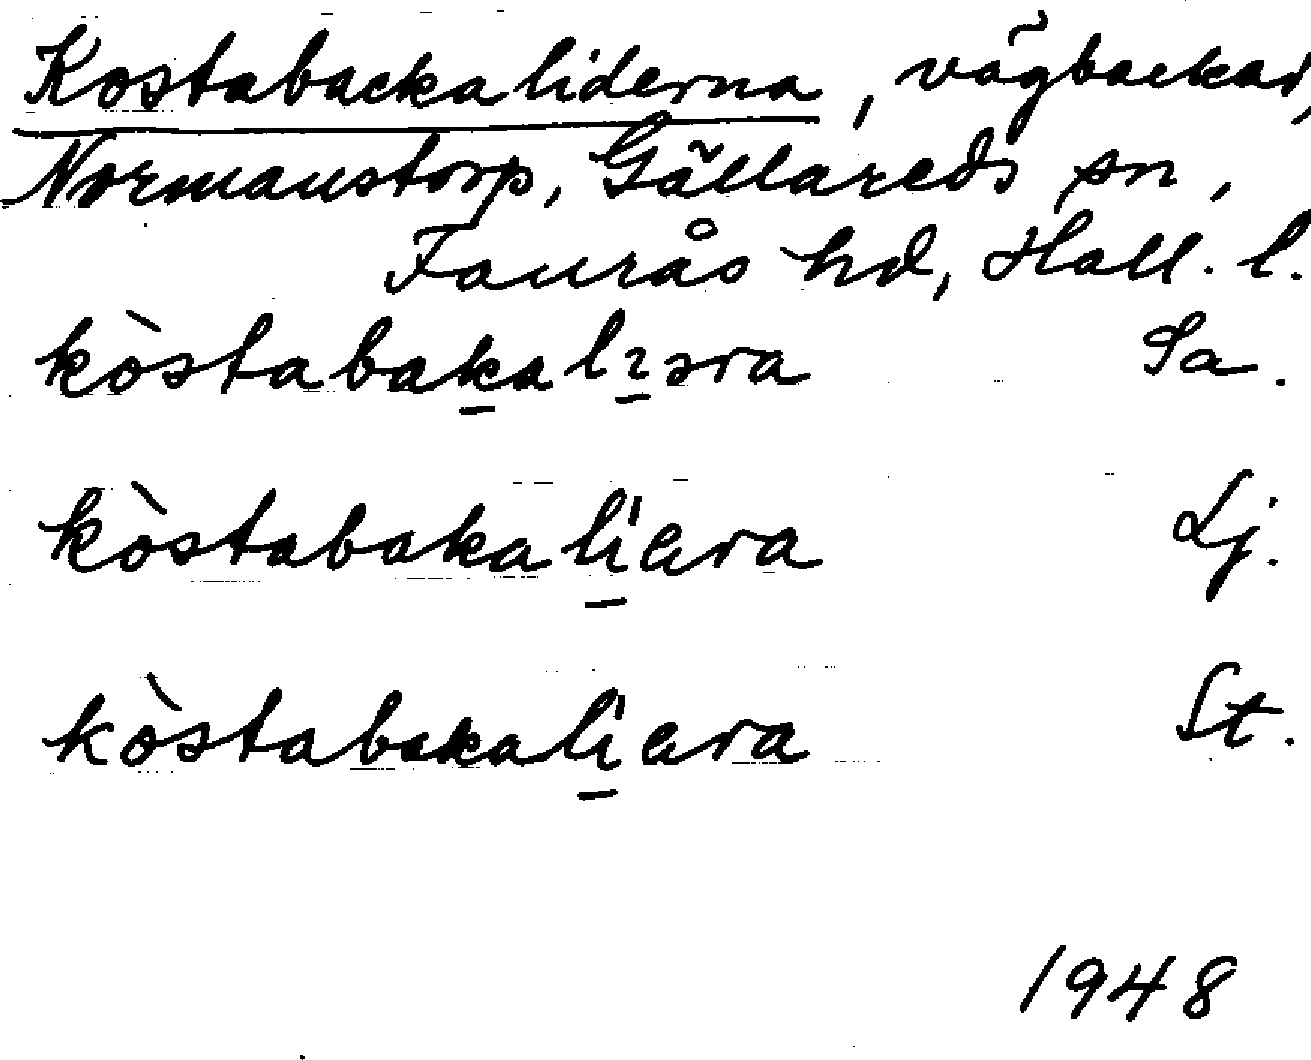 Kostabackaliderna, vägbackar,
Normanstorp, Gällareds sn,
Faurås hd, Hall. l.
kòstabakalɿɘra Sa.
kòstabakaliɐra Lj.
kòstabakaliɐra St.
1948